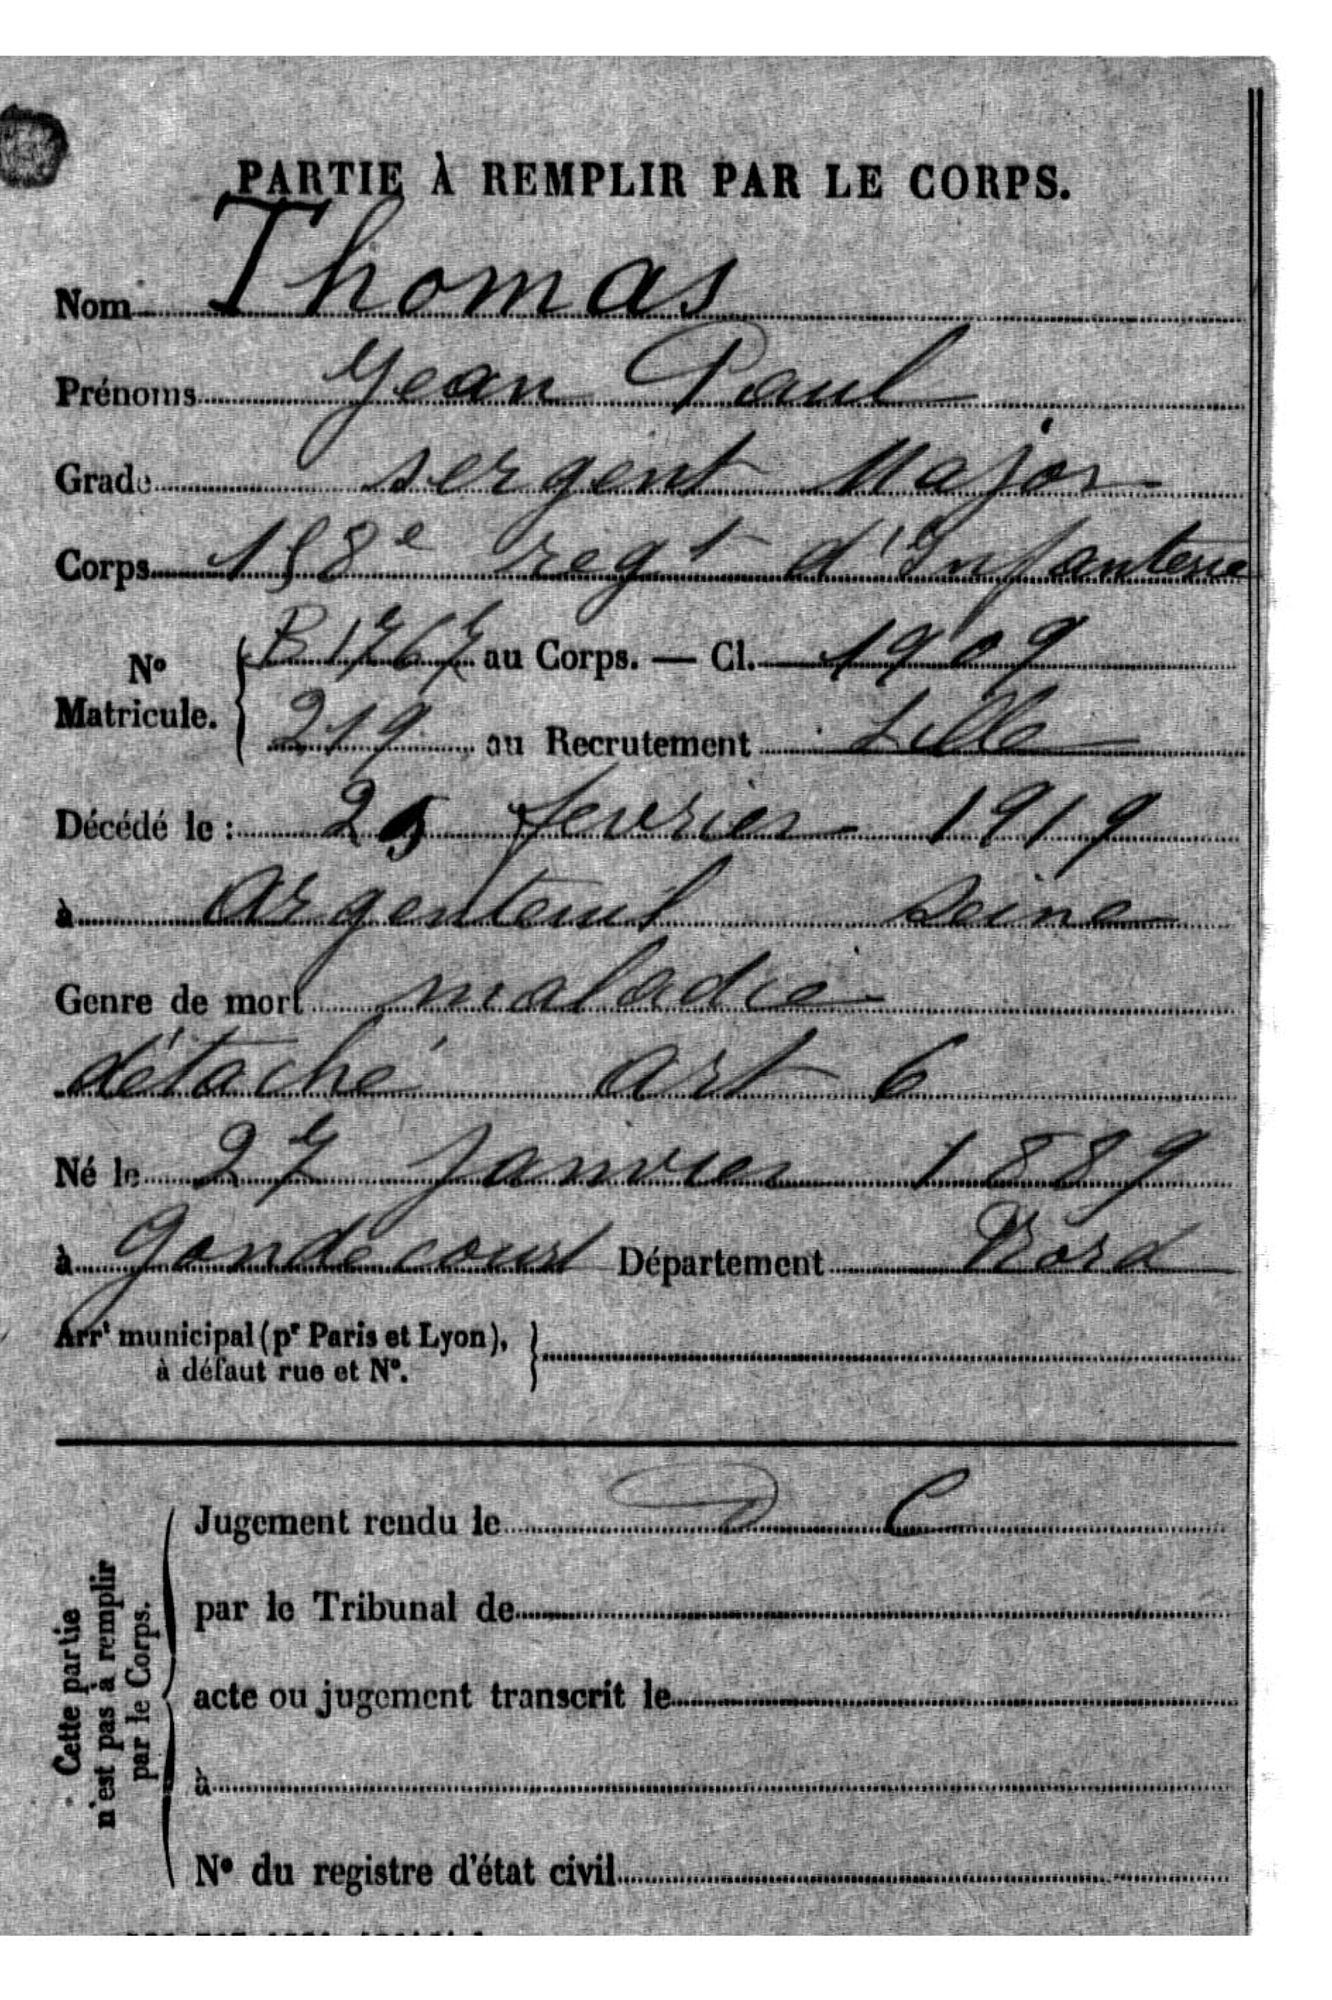 PARTIE À REMPLIR PAR LE CORPS.
Nom Thomas
Prénoms Jean Paul
Grade sergent Major
Corps 158e regt d'Infanterie
N° Matricule. B 1767 au Corps. — Cl. 1909
219 au Recrutement Lille
Décédé le : 25 fevrier 1919
à argenteuil Seine
Genre de mort maladie
détaché art 6
Né le 27 Janvier 1889
à Gondecourt Département Nord
Arrt municipal (pr Paris et Lyon),
à défaut rue et N°.
Cette partie
n'est pas à remplir
par le Corps.
Jugement rendu le D C
par le Tribunal de
acte ou jugement transcrit le
à
N° du registre d'état civil